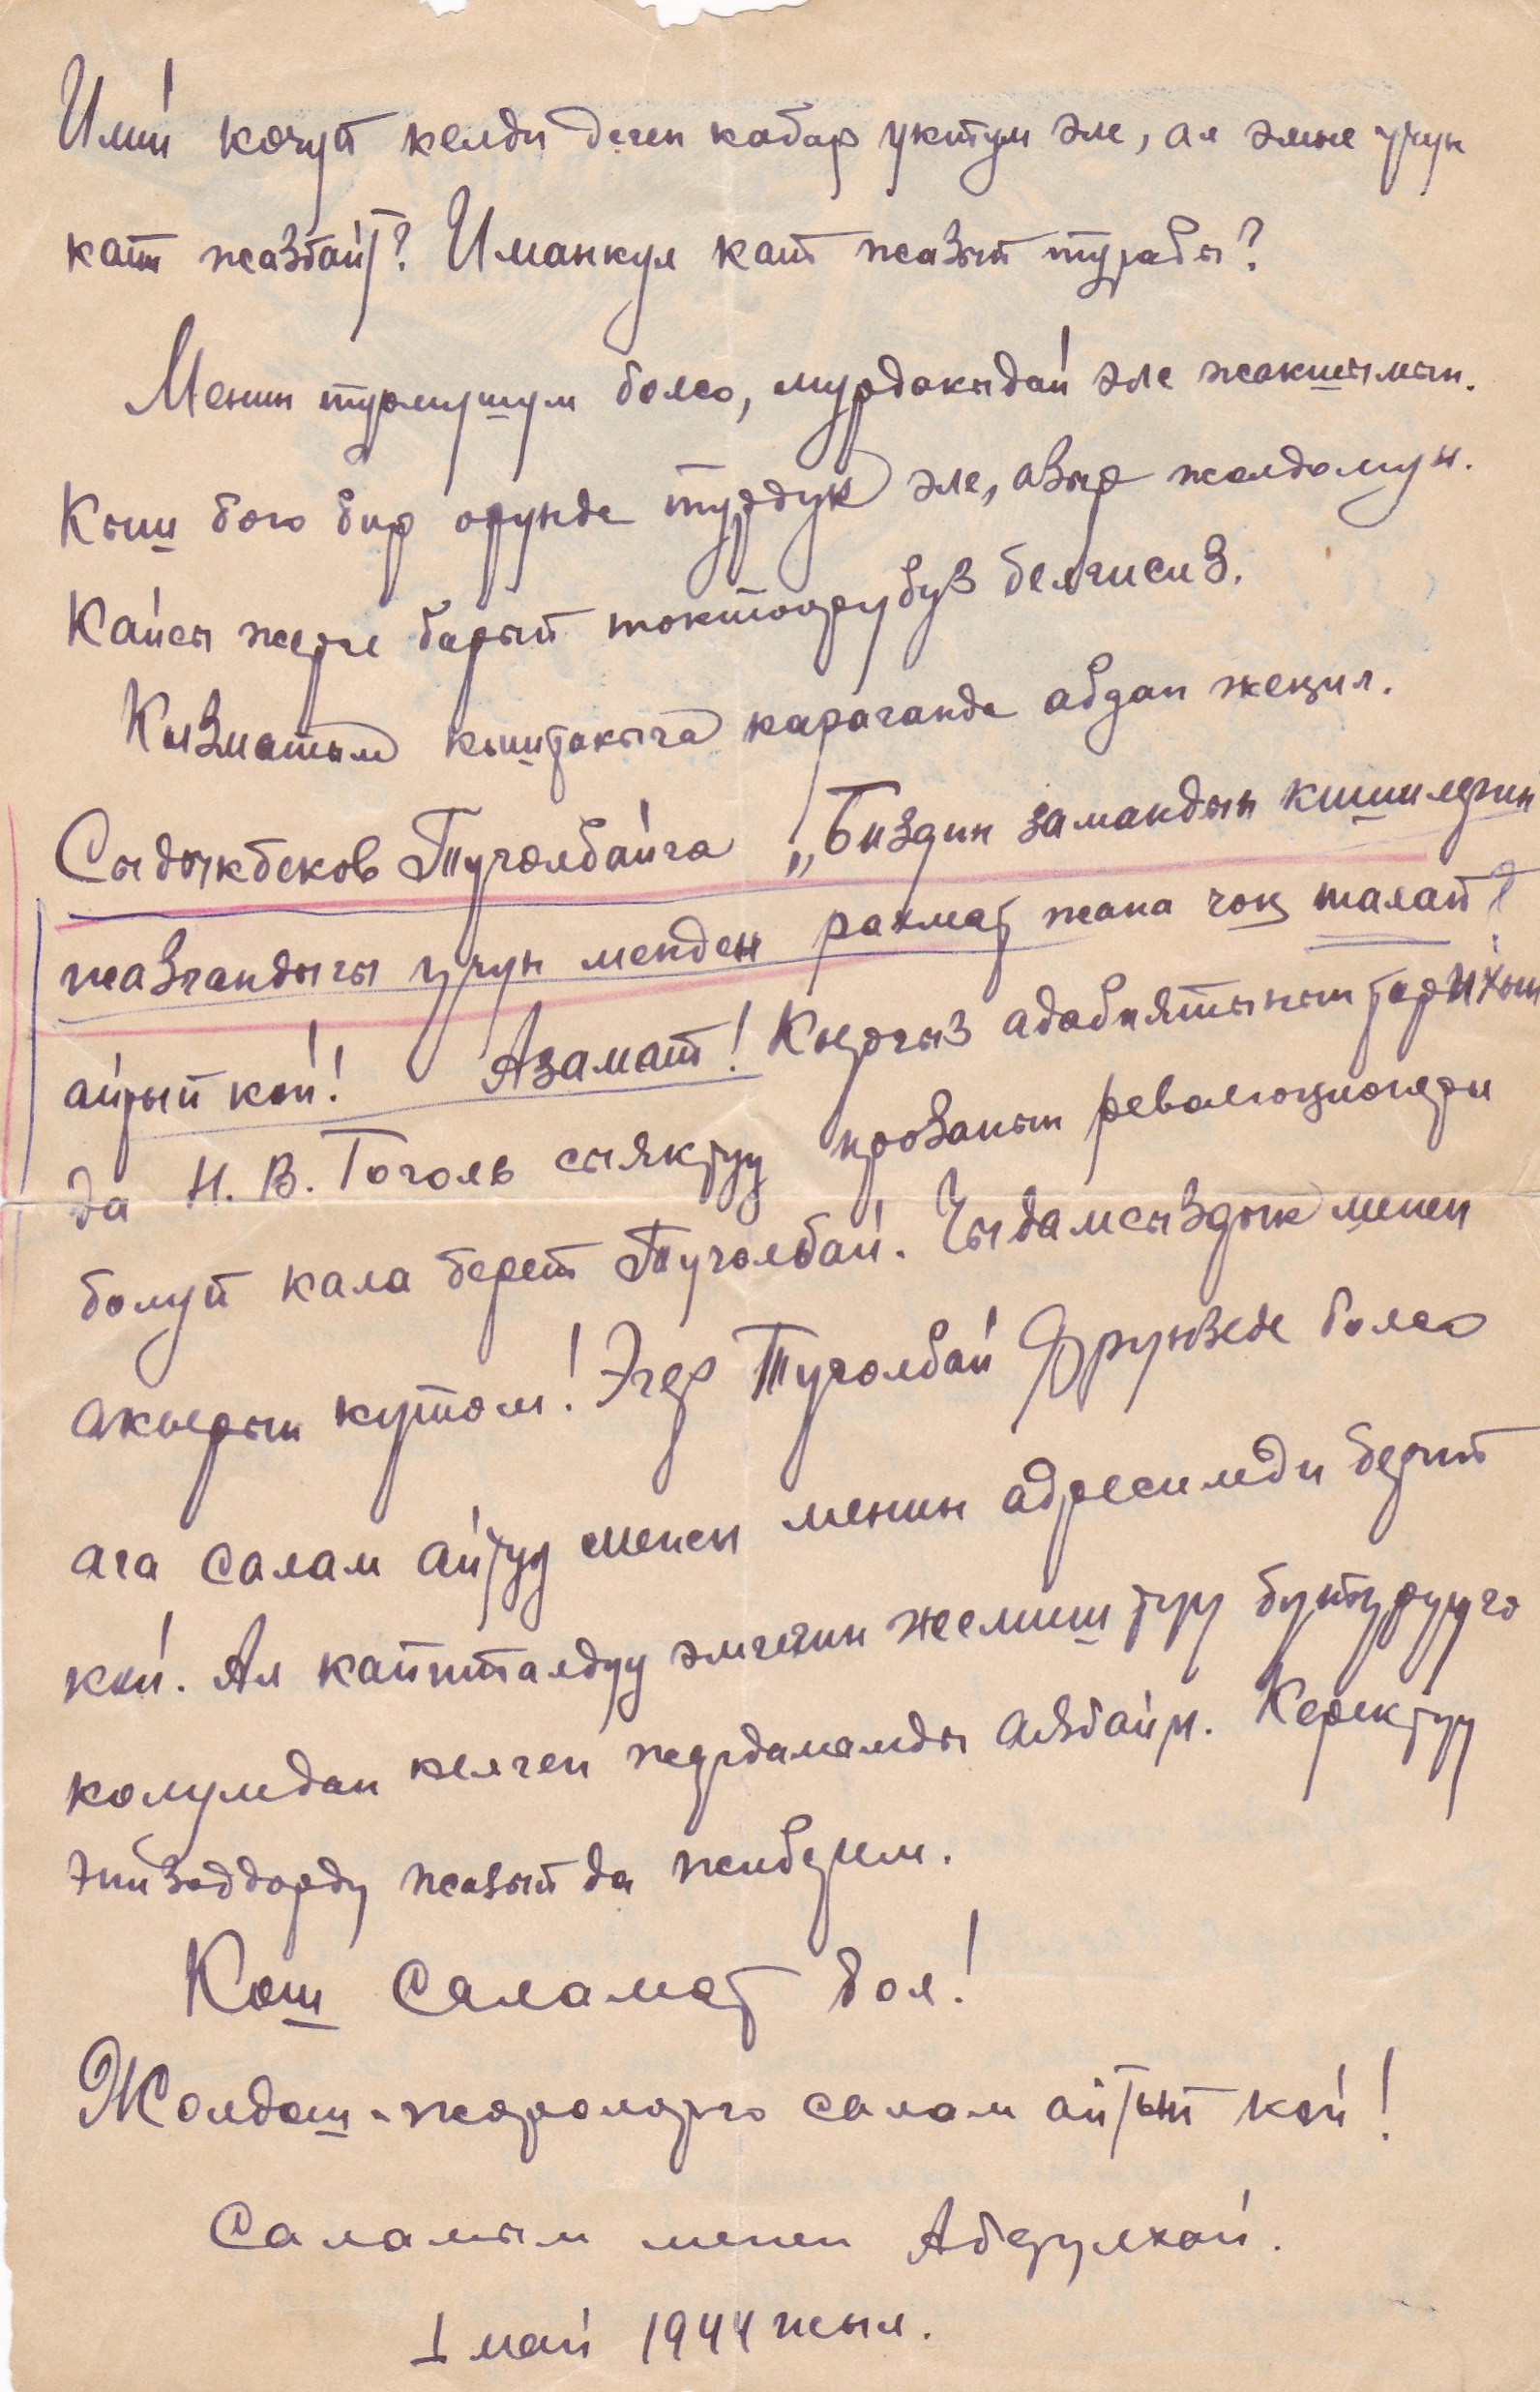 Илий көчүп келди деген кабар уктум эле, ал эмне үчүн
кат жазбайт? Иманкул кат жазып турабы?
Менин турмушум болсо, мурдакыдай эле жакшымын.
Кыш бою бир орунда турдук эле, азыр жолдомун.
Кайсы жерге барып токтоорубуз белгисиз.
Кызматым кыштакыга караганда абдан жеңил.
Сыдыкбеков Түгөлбайга „Биздин замандын кишилерин
жазгандыгы үчүн менден рахмат жана чоң талап
айтып кой! Азамат! Кыргыз адабиятынын тарихын
да Н. В. Гоголь сыяктуу прозанын революционери
болуп кала берет Түгөлбай. Чыдамсыздык менен
акырын күтөм! Эгер Түгөлбай Фрунзеде болсо
ага салам айтуу менен менин адресимди берип
кой. Ал капитталдуу эмгегин жемиштүү бүтүрүүгө
колумдан келген жардамамды аябайм. Керектүү
эпизоддорду жазып да жиберем.
Кош саламат бол!
Жолдош-жораларга салам айтып кой!
Саламым менен Абдулхай.
1 май 1944 жыл.